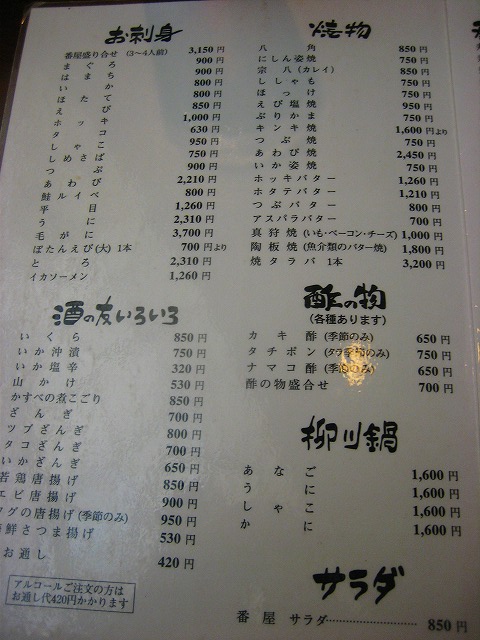 お刺身
番屋盛り合せ (3〜4人前) 3,150円
まぐろ 900円
はまち 900円
いか 800円
ほたて 800円
えび 850円
ホッキ 1,000円
タコ 630円
しゃこ 950円
しめさば 750円
つぶ 900円
あわび 2,210円
鮭ルイベ 800円
平目 1,260円
うに 2,310円
毛がに 3,700円
ぼたんえび(大) 1本 700円より
とろ 2,310円
イカソーメン 1,260円
酒の友いろいろ
いくら 850円
いか沖漬 750円
いか塩辛 320円
山かけ 530円
かすべの煮こごり 850円
ざんぎ 700円
ツブざんぎ 800円
タコざんぎ 700円
いかざんぎ 650円
若鶏唐揚げ 850円
エビ唐揚げ 900円
フグの唐揚げ(季節のみ) 950円
海鮮さつま揚げ 530円
お通し 420円
アルコールご注文の方は
お通し代420円かかります
焼物
八角 850円
にしん姿焼 750円
宗八(カレイ) 850円
ししゃも 750円
ほっけ 750円
えび塩焼 950円
ぶりかま 750円
キンキ焼 1,600円より
つぶ焼 750円
あわび焼 2,450円
いか姿焼 750円
ホッキバター 1,260円
ホタテバター 1,210円
つぶバター 800円
アスパラバター 700円
真狩焼(いも・ベーコン・チーズ) 1,000円
陶板焼(魚介類のバター焼) 1,800円
焼タラバ 1本 3,200円
酢の物
(各種あります)
カキ酢(季節のみ) 650円
タチポン(タラ季節のみ) 750円
ナマコ酢(季節のみ) 650円
酢の物盛合せ 700円
柳川鍋
あなご 1,600円
うに 1,600円
しゃこ 1,600円
かに 1,600円
サラダ
番屋サラダ 850円